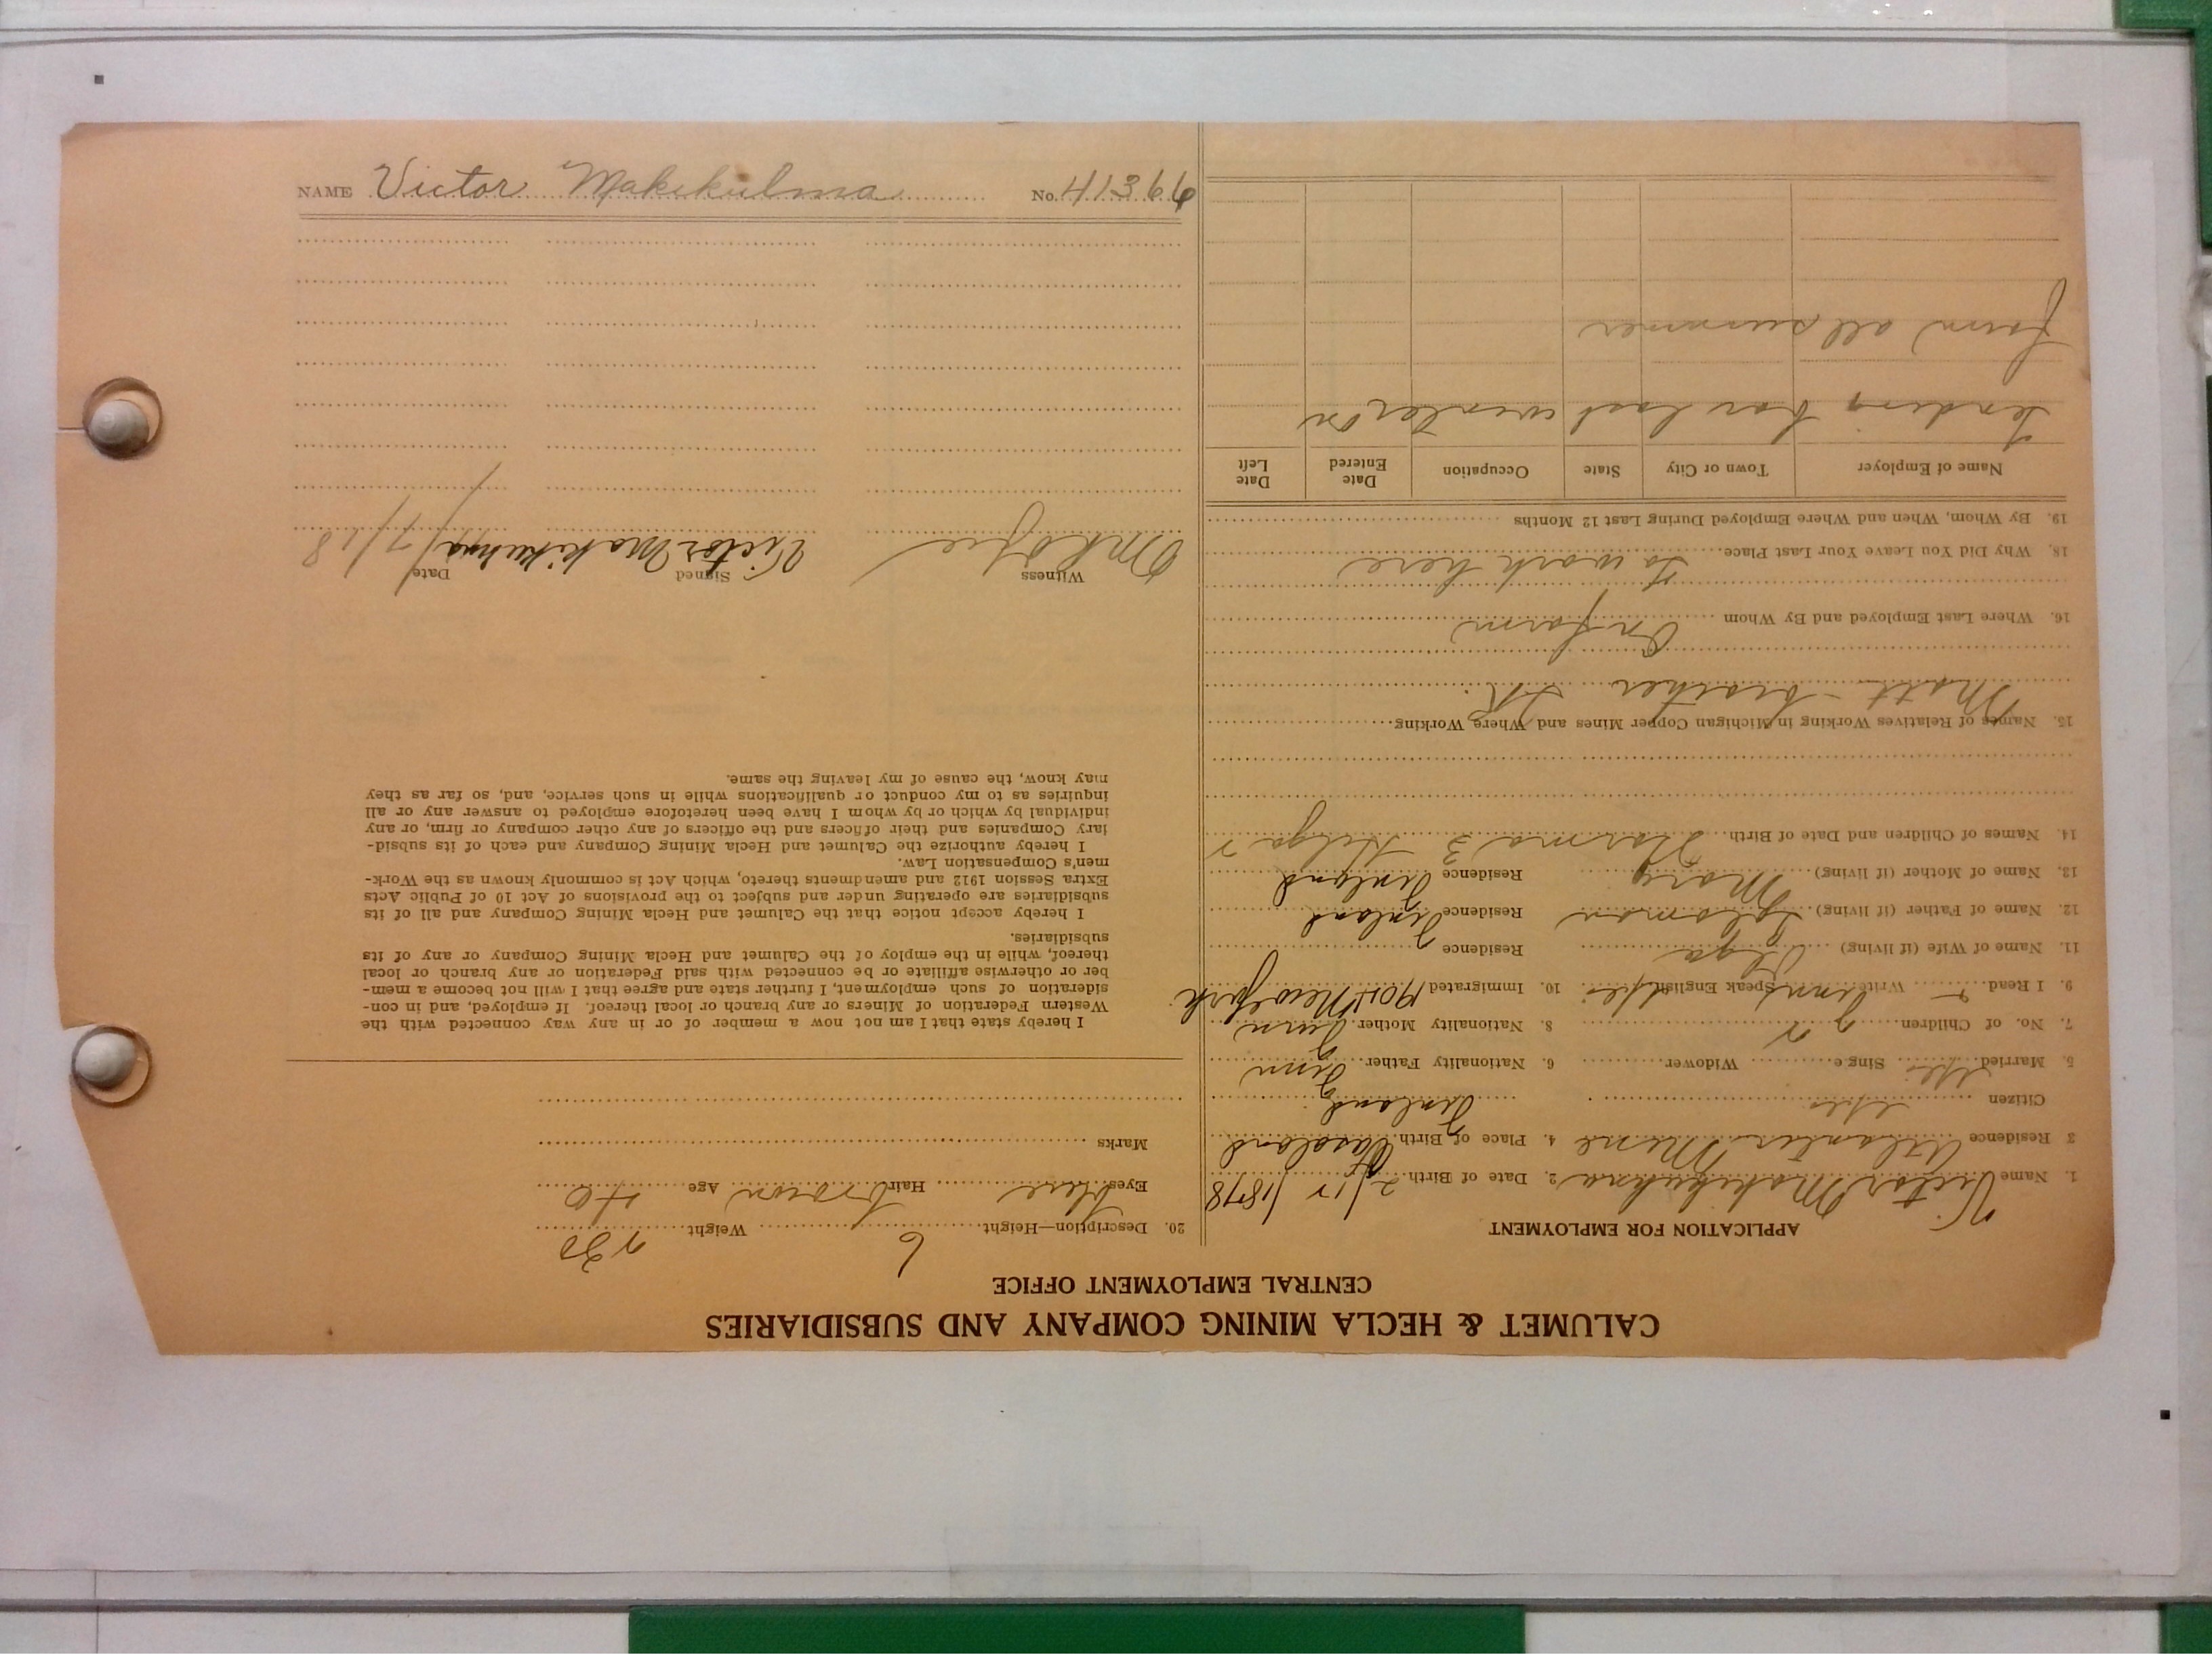 CALUMET & HECLA MINING COMPANY AND SUBSIDIARIES
CENTRAL EMPLOYMENT OFFICE
APPLICATION FOR EMPLOYMENT
1. Name Victor Makikulma 2. Date of Birth 2/12/1878
3 Residence Atlantic Mine 4. Place of Birth Vasaland
Finland
Citizen Yes
5. Married Yes Single Widower 6. Nationality Father Finn
7. No. of Children 2 8. Nationality Mother Finn
9. I Read Write Finn Speak English Yes 10. Immigrated New York
11. Name of Wife (if living) Olga Residence
12. Name of Father (if living) Soloman Residence Finland
13. Name of Mother (if living) Mary Residence Finland
14. Names of Children and Date of Birth 3 Helga
15. Names of Relatives Working in Michigan Copper Mines and Where Working
Matt - brother
16. Where Last Employed and By Whom
On farm
18. Why Did You Leave Your Last Place to work here
19. By Whom, When and Where Employed During Last 12 Months
Name of Employer Town or City State Occupation Date Entered Date Left
Tending bar last winter on
farm all summer
20. Description—Height 6 Weight 230
Eyes Blue Hair brown Age 40
Marks
I hereby state that I am not now a member of or in any way connected with the
Western Federation of Miners or any branch or local thereof. If employed, and in con-
sideration of such employment, I further state and agree that I will not become a mem-
ber or otherwise affiliate or be connected with said Federation or any branch or local
thereof, while in the employ of the Calumet and Hecla Mining Company or any of its
subsidiaries.
I hereby accept notice that the Calumet and Hecla Mining Company and all of its
subsidiaries are operating under and subject to the provisions of Act 10 of Public Acts
Extra Session 1912 and amendments thereto, which Act is commonly known as the Work-
men's Compensation Law.
I hereby authorize the Calumet and Hecla Mining Company and each of its subsid-
iary Companies and their officers and the officers of any other company or firm, or any
individual by which or by whom I have been heretofore employed to answer any or all
inquiries as to my conduct or qualifications while in such service, and, so far as they
may know, the cause of my leaving the same.
Witness Signed Date
Victor Makikulma
NAME Victor Makikulma No. 41366